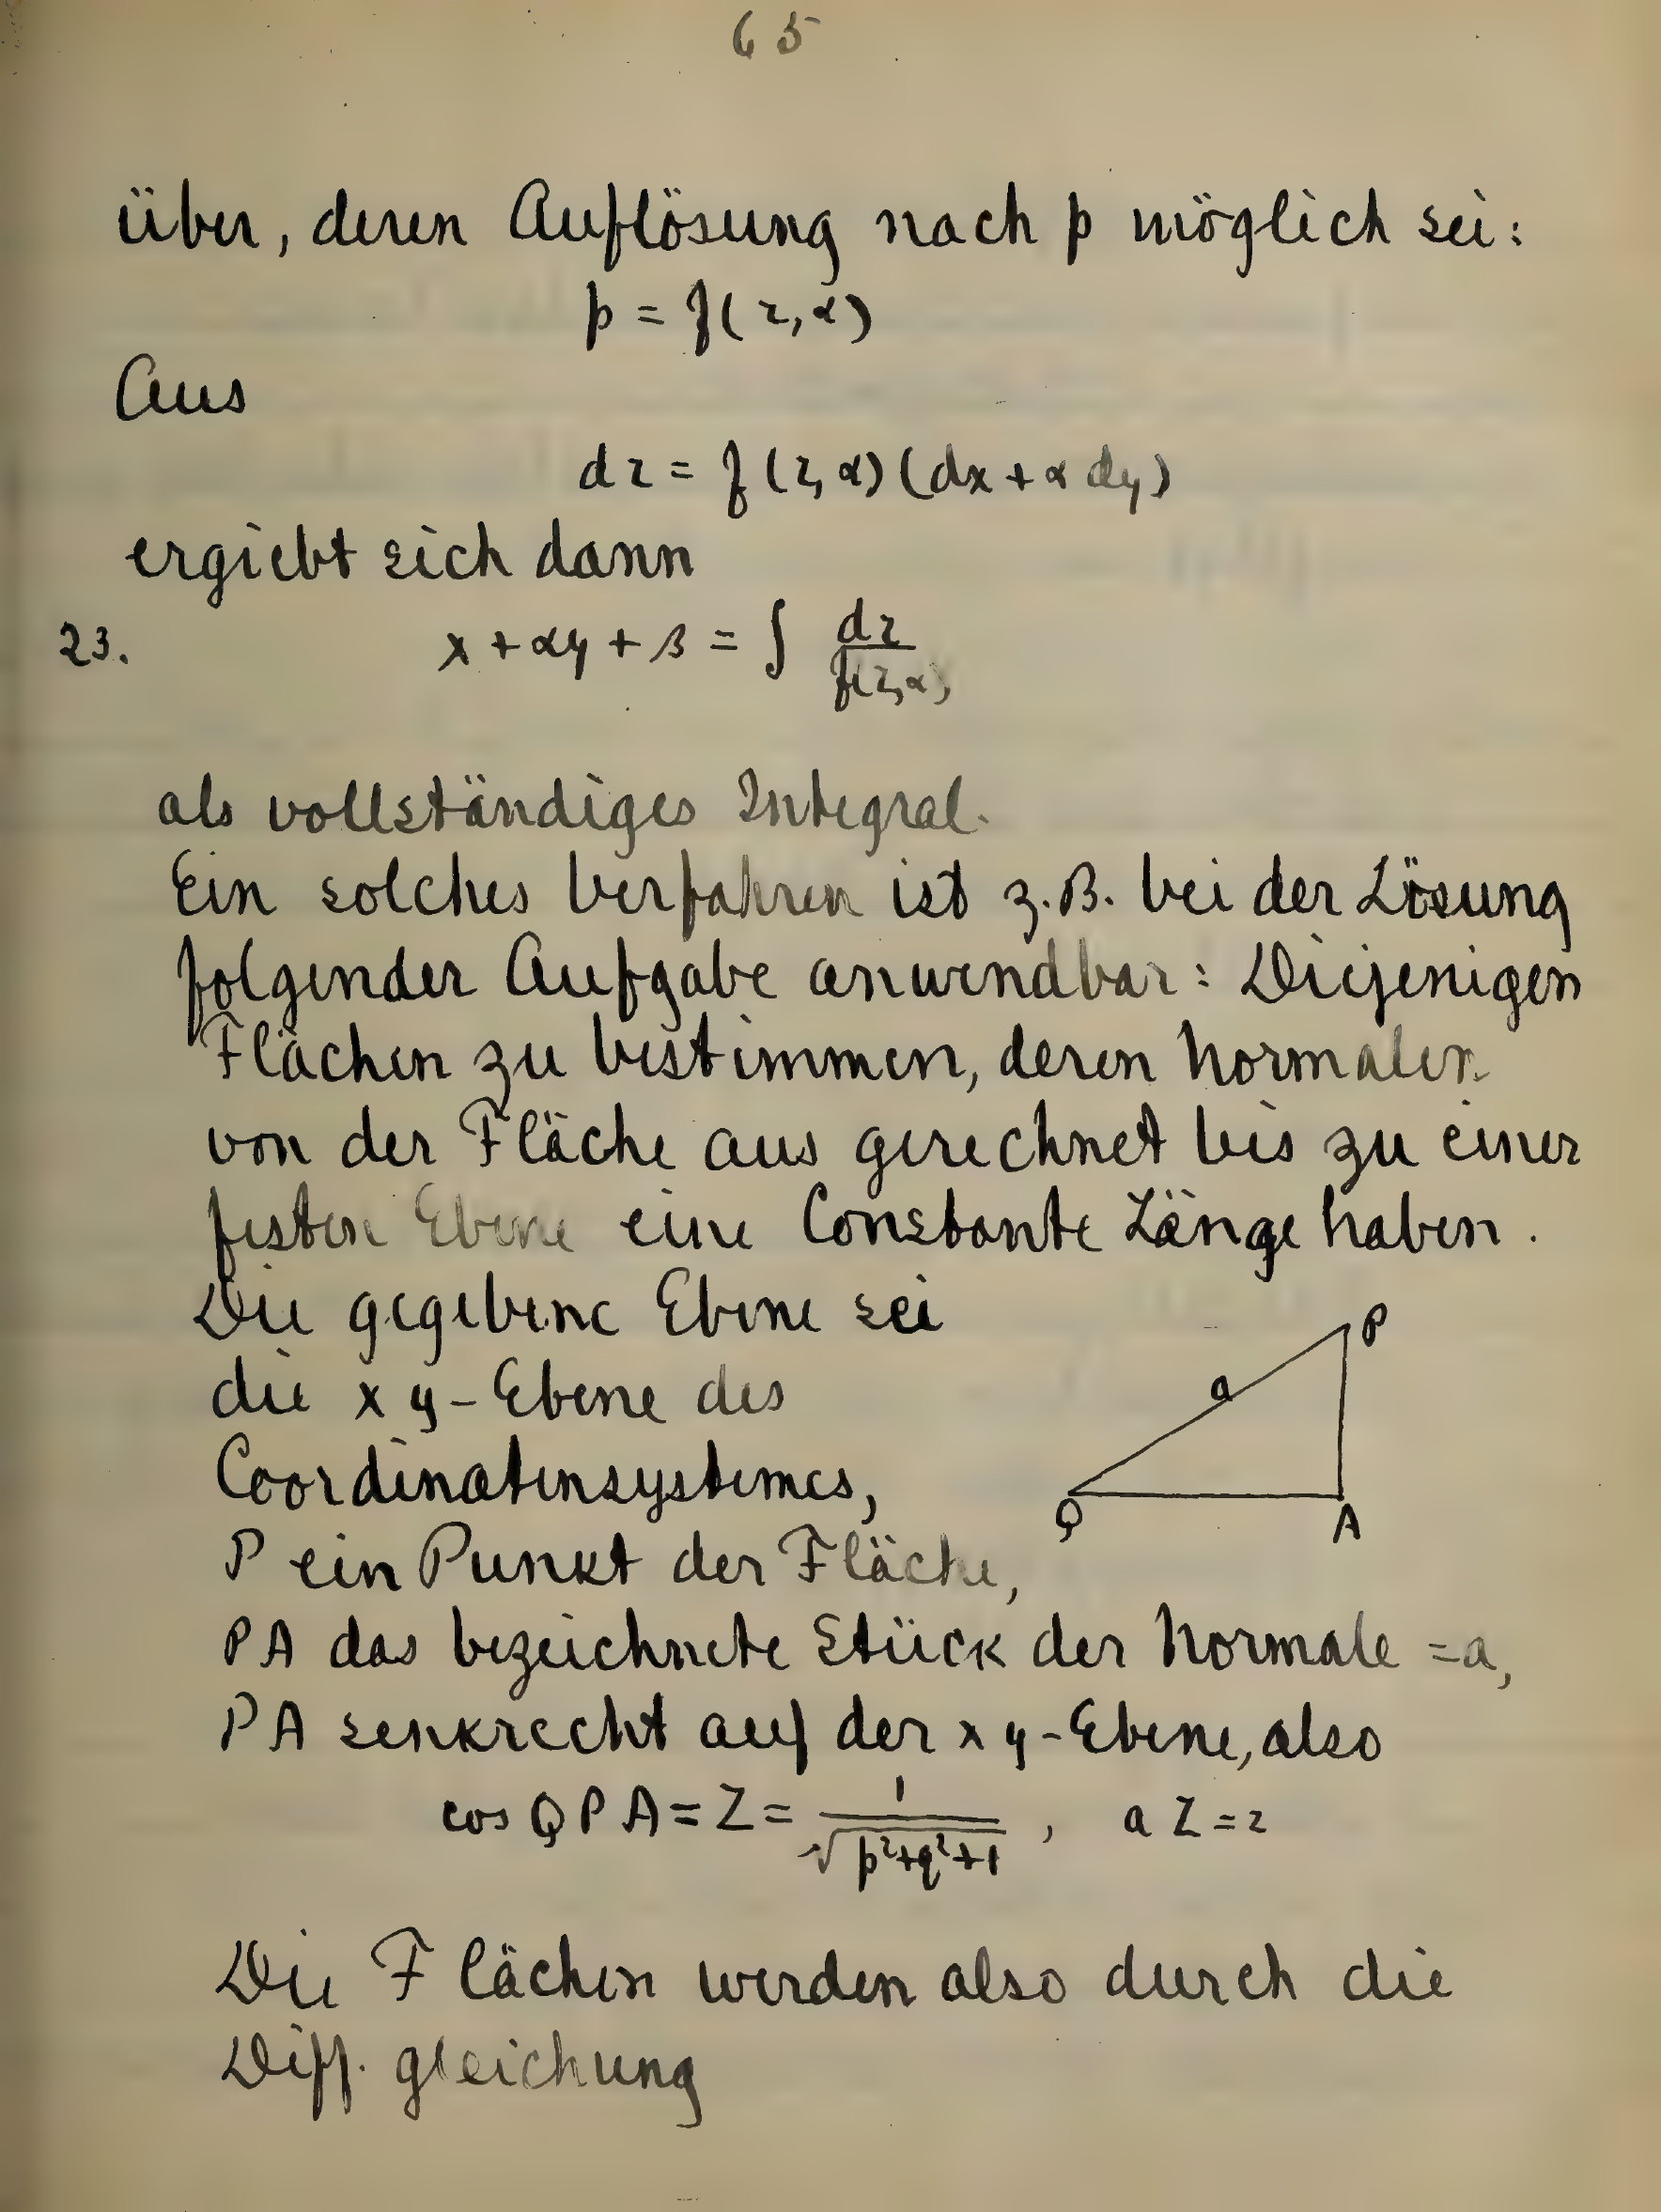 65
über, deren Auflösung nach p möglich sei:
p = f(z,α)
Aus
dz = f(z,α)(dx+α dy)
ergiebt sich dann
23. x + αy + β = ∫ dz / f(z,α)
als vollständiges Integral.
Ein solches Verfahren ist z.B. bei der Lösung
folgender Aufgabe anwendbar: Diejenigen
Flächen zu bestimmen, deren Normalen
von der Fläche aus gerechnet bis zu einer
festen Ebene eine Constante Länge haben.
Die gegebene Ebene sei
die xy-Ebene des
Coordinatensystemes,
P
a
Q
A
P ein Punkt der Fläche,
PA das bezeichnete Stück der Normale =a,
PA senkrecht auf der xy-Ebene, also
cos QPA = Z = 1 / √p²+q²+1 , aZ=z
Die Flächen werden also durch die
Diff. gleichung